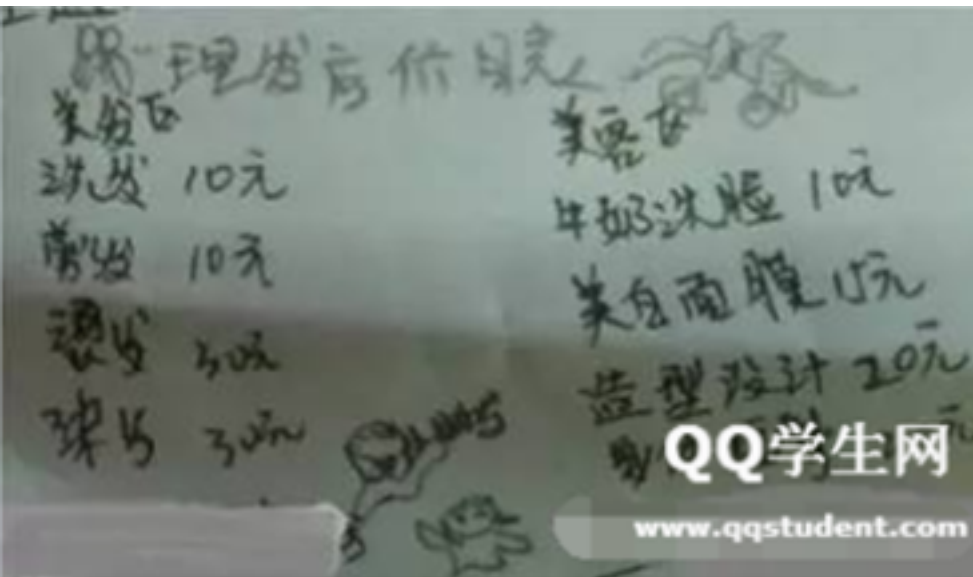 理发店价目表
美发区
洗发 10元
剪发 10元
烫发 30元
染发 30元
美容区
牛奶洗脸 10元
美白面膜 15元
造型设计 20元
QQ学生网
www.qqstudent.com